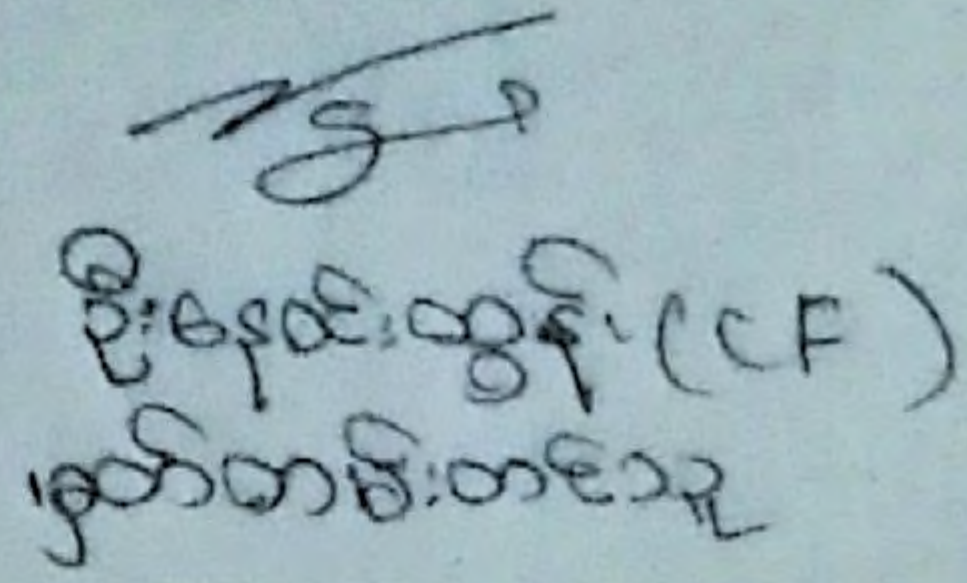 ဦးနေဝင်းထွန်း (CF)
မှတ်တမ်းတင်သူ